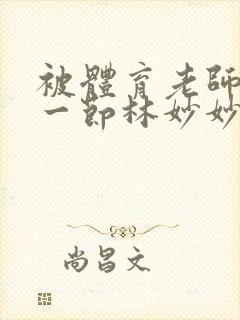 被體育老師
一節林妙妙
尚昌文